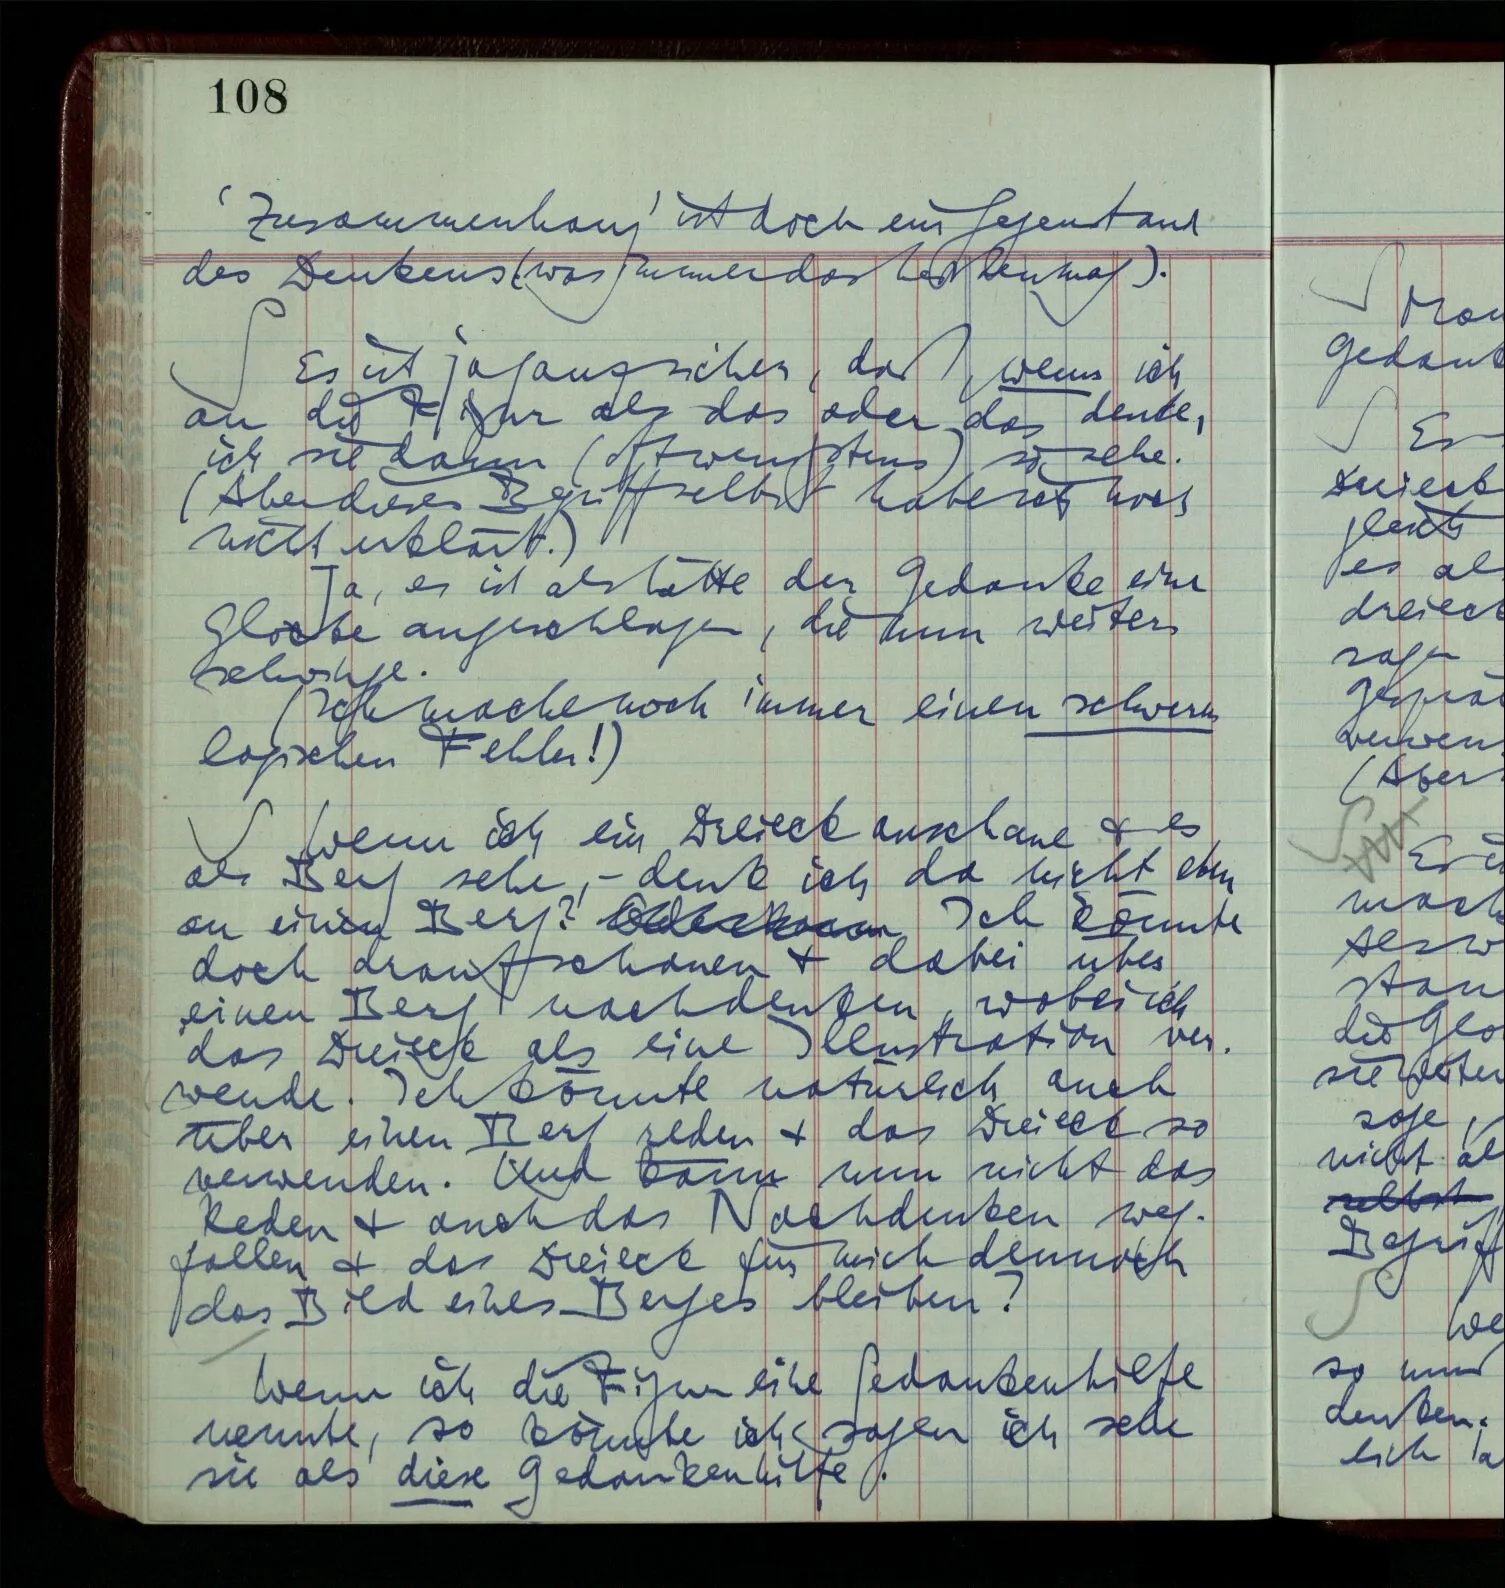 108
'Zusammenhang' ist doch ein Gegenstand
des Denkens (was immer das heißen mag).
∫ Es ist ja ganz sicher, daß, wenn ich
an die Figur als das oder das denke,
ich sie dann (oft wenigstens) so sehe.
(Aber diesen Begriff selbst habe ich noch
nicht erklärt.)
Ja, es ist als hätte der Gedanke eine
Glocke angeschlagen, die nun weiter
schwinge.
(Ich mache noch immer einen schweren
logischen Fehler!)
∫ Wenn ich ein Dreieck anschaue & es
als Berg sehe, – denk ich da nicht eben
an einen Berg? Ich könnte
doch draufschauen & dabei über
einen Berg nachdenken, wobei ich
das Dreieck als eine Illustration ver-
wende. Ich könnte natürlich auch
über einen Berg reden & das Dreieck so
verwenden. Und kann nun nicht das
Reden & auch das Nachdenken weg-
fallen & das Dreieck für mich dennoch
das Bild eines Berges bleiben?
Wenn ich die Figur eine Gedankenhilfe
nennte, so könnte ich sagen ich sehe
sie als diese Gedankenhilfe.
∫
Gedank
∫ Es
Dreieck
gleich
es al
dreieck
sagen
Gespräc
verwen
(Aber
∫ Es i
mach
Als w
stan
die Glo
sie weiter
sage,
nicht al
selbst
Begriff
∫ We
so muß
denken.
lich